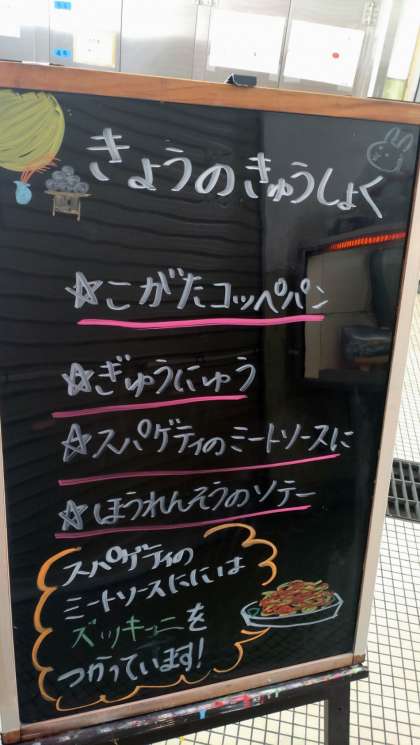 きょうのきゅうしょく
☆こがたコッペパン
☆ぎゅうにゅう
☆スパゲティのミートソースに
☆ほうれんそうのソテー
スパゲティの
ミートソースにには
ズッキーニを
つかっています!